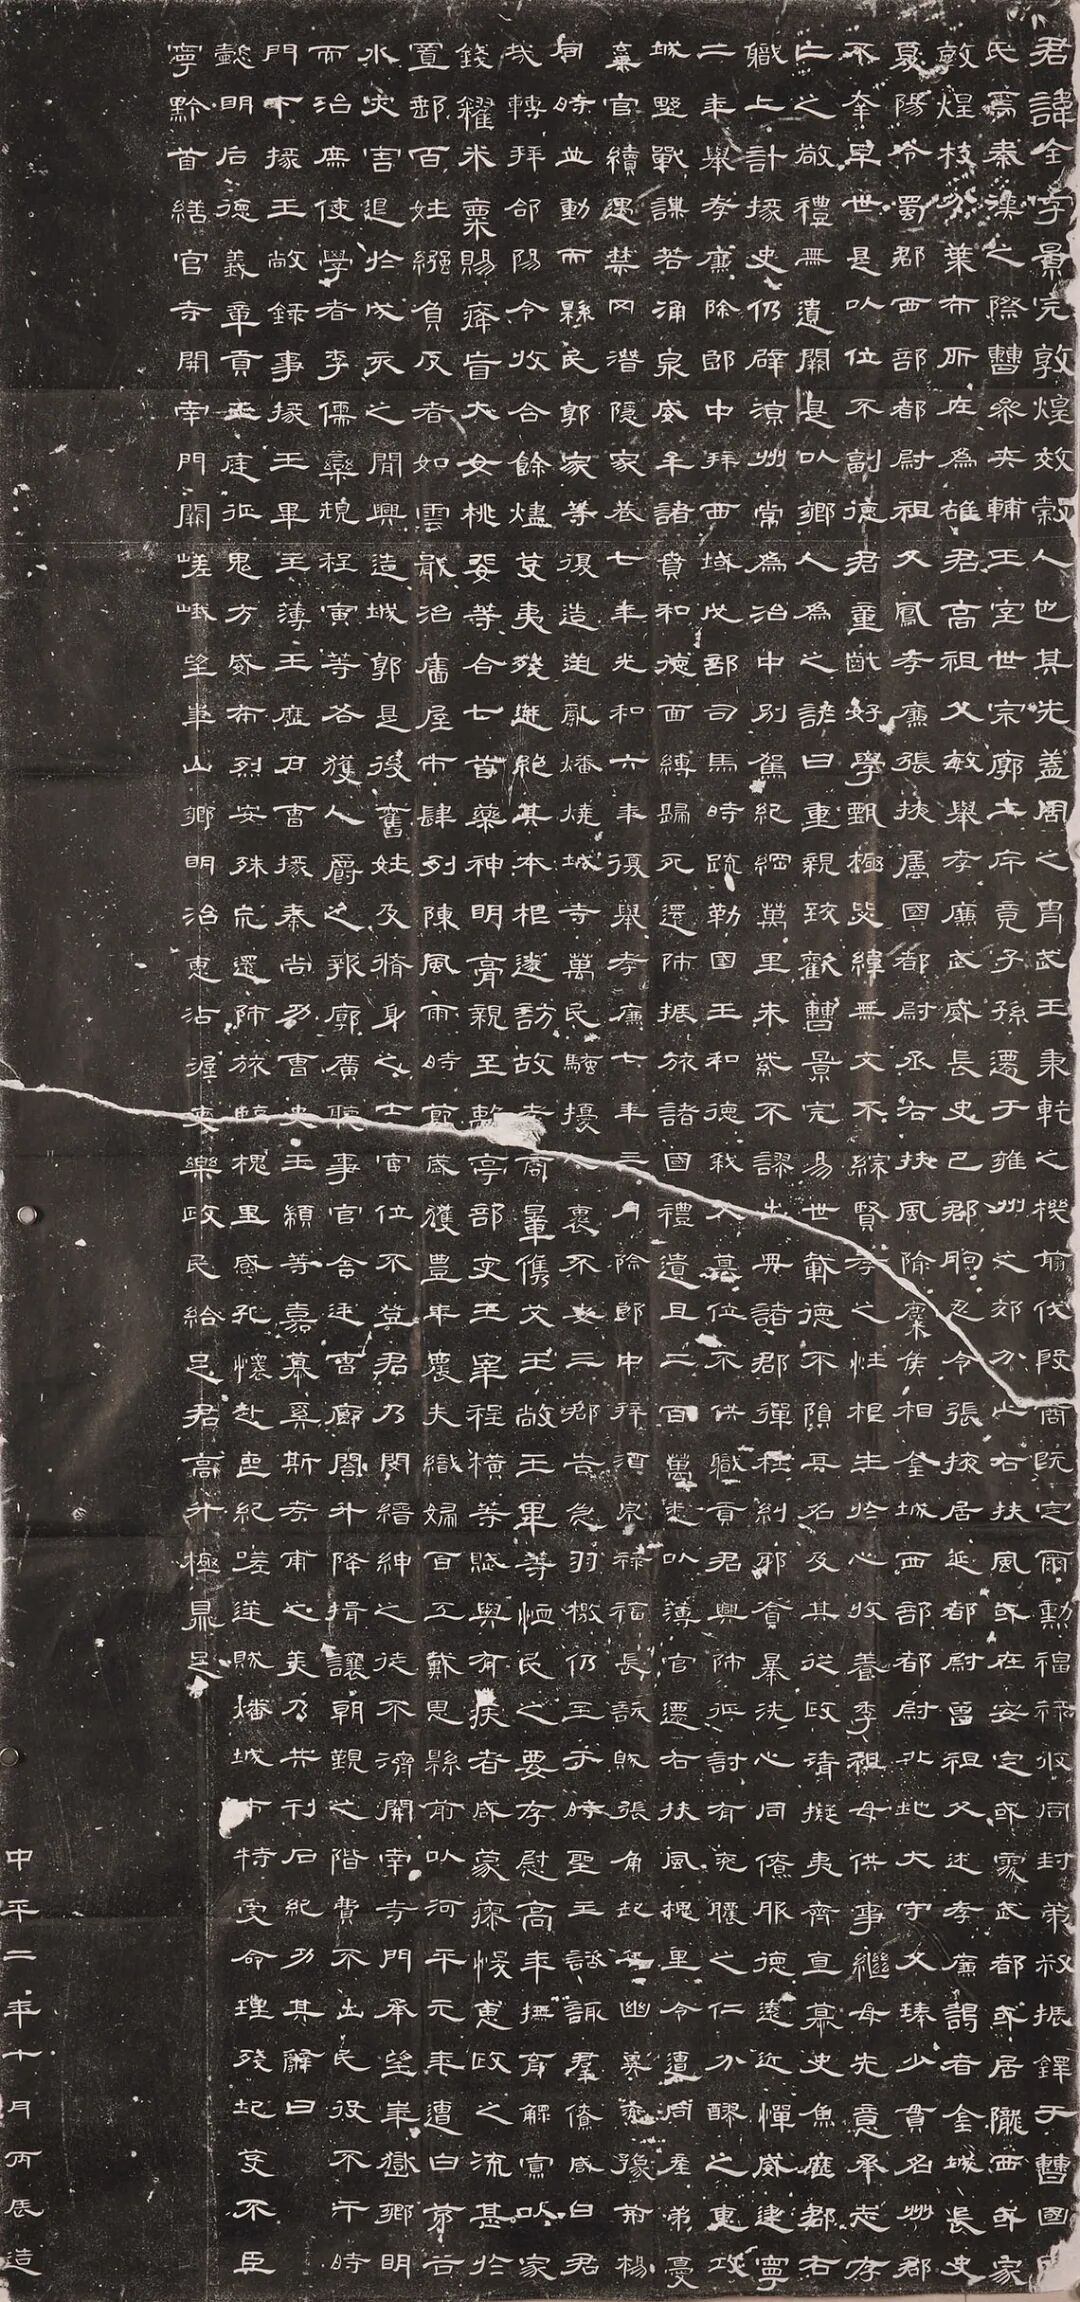 君諱全字景完敦煌效穀人也其先蓋周之冑武王秉乾之機翦伐殷商既定爾勳福祿攸同封弟叔振鐸于曹國因
氏焉秦漢之際曹參夾輔王室世宗廓土斥竟子孫遷于雍州之郊分止右扶風或在安定或處武都或居隴西或家
敦煌枝分葉布所在為雄君高祖父敏舉孝廉武威長史巴郡朐忍令張掖居延都尉曾祖父述孝廉謁者金城長史
夏陽令蜀郡西部都尉祖父鳳孝廉張掖屬國都尉丞右扶風隃麋侯相金城西部都尉北地大守父琫少貫名州郡
不幸早世是以位不副德君童齔好學甄極毖緯無文不綜賢孝之性根生於心收養季祖母供事繼母先意承志存
亡之敬禮無遺闕是以鄉人為之諺曰重親致歡曹景完易世載德不隕其名及其從政清擬夷齊直慕史魚歷郡右
職上計掾史仍辟涼州常為治中別駕紀綱萬里朱紫不謬出典諸郡彈枉糾邪貪暴洗心同僚服德遠近憚威建寧
二年舉孝廉除郎中拜西域戊部司馬時疏勒國王和德弒父篡位不供職貢君興師征討有兗膿之仁分醪之惠攻
城野戰謀若涌泉威牟諸賁和德面縛歸死還師振旅諸國禮遺且二百萬悉以薄官遷右扶風槐里令遭同產弟憂
棄官續遇禁罔潛隱家巷七年光和六年復舉孝廉七年三月除郎中拜酒泉祿福長訞賊張角起兵幽冀兗豫荊楊
同時並動而縣民郭家等復造逆亂燔燒城寺萬民騷擾人裹不安三郡告急羽檄仍至于時聖主諮諏群僚咸曰君
哉轉拜郃陽令收合餘燼芟夷殘迸絕其本根遂訪故老商量儁艾王敞王畢等恤民之要存慰高年撫育鰥寡以家
錢糴米粟賜癃盲大女桃婓等合七首藥神明膏親至離亭部吏王宰程橫等賦與有疾者咸蒙瘳悛惠政之流甚於
置郵百姓繦負反者如雲戢治廧屋市肆列陳風雨時節歲獲豐年農夫織婦百工戴恩縣前以河平元年遭白茅谷
水災害退於戌亥之間興造城郭是後舊姓及脩身之士官位不登君乃閔縉紳之徒不濟開南寺門承望華嶽鄉明
而治庶使學者李儒欒規程寅等各獲人爵之報廓廣聽事官舍廷曹廊閣升降揖讓朝覲之階費不出民役不干時
門下掾王敞錄事掾王畢主薄王歷戶曹掾秦尚功曹史王顓等嘉慕奚斯考甫之美乃共刊石紀功其辭曰
懿明后德義章貢王庭征鬼方威布烈安殊荒還師旅臨槐里感孔懷赴喪紀嗟逆賊燔城市特受命理殘圮芟不臣
寧黔首繕官寺開南門闕嵯峨望華山鄉明治惠沾渥吏樂政民給足君高升極鼎足
中平二年十月丙辰造